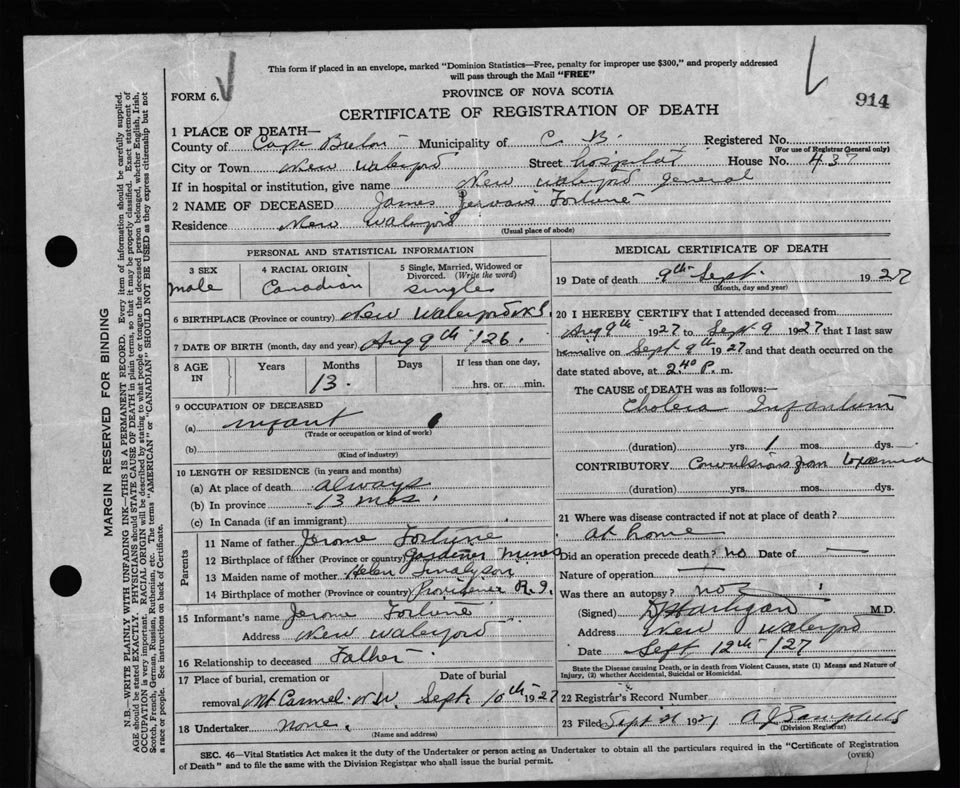 This form if placed in an envelope, marked "Dominion Statistics—Free, penalty for improper use $300," and properly addressed
will pass through the Mail "FREE"
FORM 6.
PROVINCE OF NOVA SCOTIA
CERTIFICATE OF REGISTRATION OF DEATH
914
1 PLACE OF DEATH—
County of Cape Breton Municipality of C. B. Registered No.
(For use of Registrar General only)
City or Town New Waterford Street hospital House No. 437
If in hospital or institution, give name New Waterford General
2 NAME OF DECEASED James Gervais Fortune
Residence New Waterford
(Usual place of abode)
PERSONAL AND STATISTICAL INFORMATION
3 SEX 4 RACIAL ORIGIN 5 Single, Married, Widowed or Divorced. (Write the word)
male Canadian single
6 BIRTHPLACE (Province or country) New Waterford N.S.
7 DATE OF BIRTH (month, day and year) Aug 9th /26.
8 AGE IN Years Months Days If less than one day,
13. hrs. or min.
9 OCCUPATION OF DECEASED
(a) infant
(Trade or occupation or kind of work)
(b)
(Kind of industry)
10 LENGTH OF RESIDENCE (in years and months)
(a) At place of death always
(b) In province 13 mos.
(c) In Canada (if an immigrant)
Parents
11 Name of father Jerome Fortune
12 Birthplace of father (Province or country) Gardener Mines
13 Maiden name of mother Helen
14 Birthplace of mother (Province or country) Providence R.I.
15 Informant's name Jerome Fortune
Address New Waterford
16 Relationship to deceased Father
17 Place of burial, cremation or removal Date of burial
Mt Carmel N.W. Sept. 10th 1927
18 Undertaker None.
(Name and address)
MEDICAL CERTIFICATE OF DEATH
19 Date of death 9th Sept. 1927
(Month, day and year)
20 I HEREBY CERTIFY that I attended deceased from
Aug 9th 1927 to Sept 9 1927 that I last saw
him alive on Sept 9th 1927 and that death occurred on the
date stated above, at 2.40 P. m.
The CAUSE of DEATH was as follows:—
Cholera Infantum
(duration) yrs. 1 mos. dys.
CONTRIBUTORY Convulsions from toxemia
(duration) yrs. mos. dys.
21 Where was disease contracted if not at place of death?
at home
Did an operation precede death? no Date of —
Nature of operation —
Was there an autopsy? no
(Signed) Hartigan M.D.
Address New Waterford
Date Sept 12th /27
State the Disease causing Death, or in death from Violent Causes, state (1) Means and Nature of
Injury, (2) whether Accidental, Suicidal or Homicidal.
22 Registrar's Record Number
23 Filed Sept 1927
(Division Registrar)
SEC. 46—Vital Statistics Act makes it the duty of the Undertaker or person acting as Undertaker to obtain all the particulars required in the "Certificate of Registration
of Death" and to file the same with the Division Registrar who shall issue the burial permit.
(OVER)
MARGIN RESERVED FOR BINDING
N.B.—WRITE PLAINLY WITH UNFADING INK—THIS IS A PERMANENT RECORD. Every item of information should be carefully supplied.
AGE should be stated EXACTLY. PHYSICIANS should STATE CAUSE OF DEATH in plain terms, so that it may be properly classified. Exact statement of
OCCUPATION is very important. RACIAL ORIGIN will be described by stating to what people or tongue the deceased person belonged, whether English, Irish,
Scotch, French, German, Russian, Ruthenian, etc. The terms "AMERICAN" or "CANADIAN" SHOULD NOT BE USED as they express citizenship but not
a race or people. See instructions on back of Certificate.